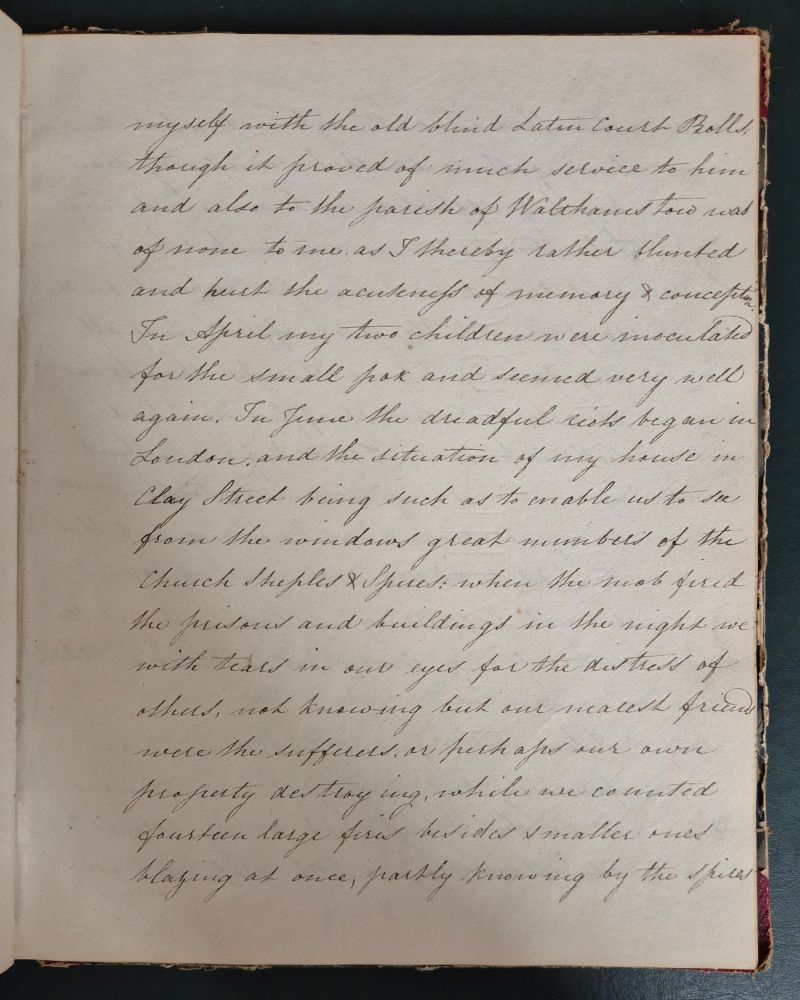 myself with the old blind Latin Court Rolls;
though it proved of much service to him
and also to the parish of Walthamstow was
of none to me. as I thereby rather blunted
and hurt the acuteness of memory & conception.
In April my two children were inoculated
for the small pox and seemed very well
again. In June the dreadful riots began in
London, and the situation of my house in
Clay Street being such as to enable us to see
from the windows great numbers of the
Church Steples & Spires: when the mob fired
the prisons and buildings in the night we
with tears in our eyes for the distress of
others, not knowing but our nearest friends
were the sufferers, or perhaps our own
property destroying, while we counted
fourteen large fires besides smaller ones
blazing at once, partly knowing by the spires